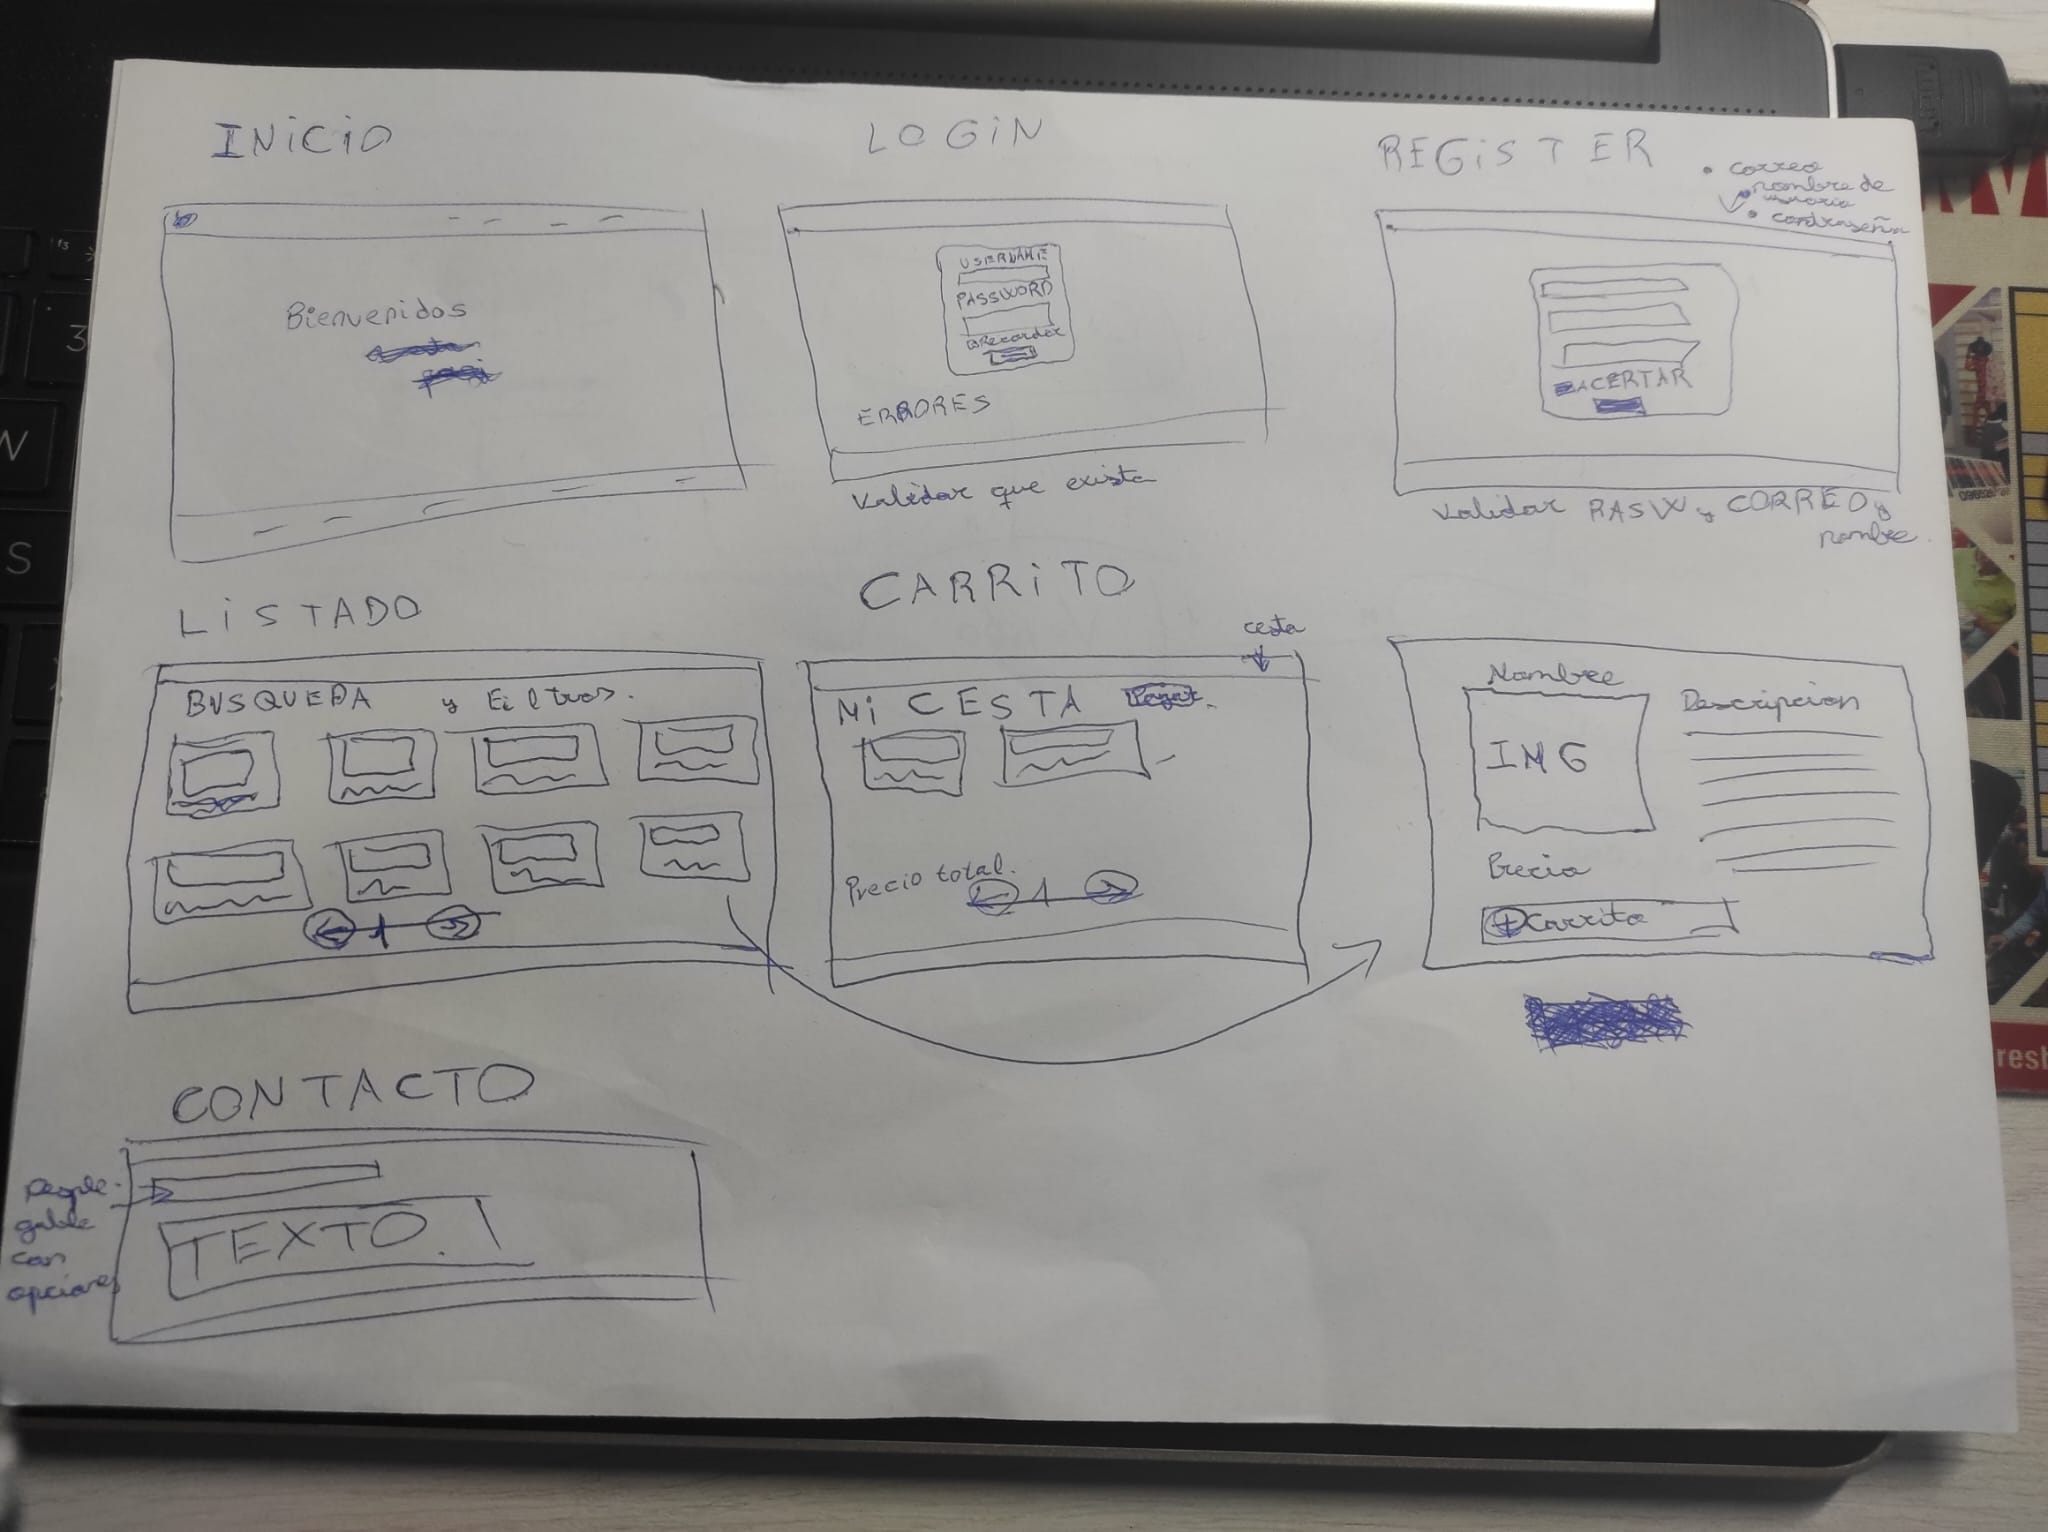 INICIO
Bienvenidos
LOGIN
USERNAME
PASSWORD
Recordar
ERRORES
Validar que exista
REGISTER
• correo
• nombre de
usuario
• contraseña
ACERTAR
Validar PASW y CORREO y
nombre
LISTADO
BUSQUEDA y Filtros.
1
CARRITO
cesta
MI CESTA Pagar.
Precio total.
1
Nombre
IMG
Descripcion
Precio
+ Carrito
CONTACTO
Desple-
gable
con
opciones
TEXTO.
3
W
S